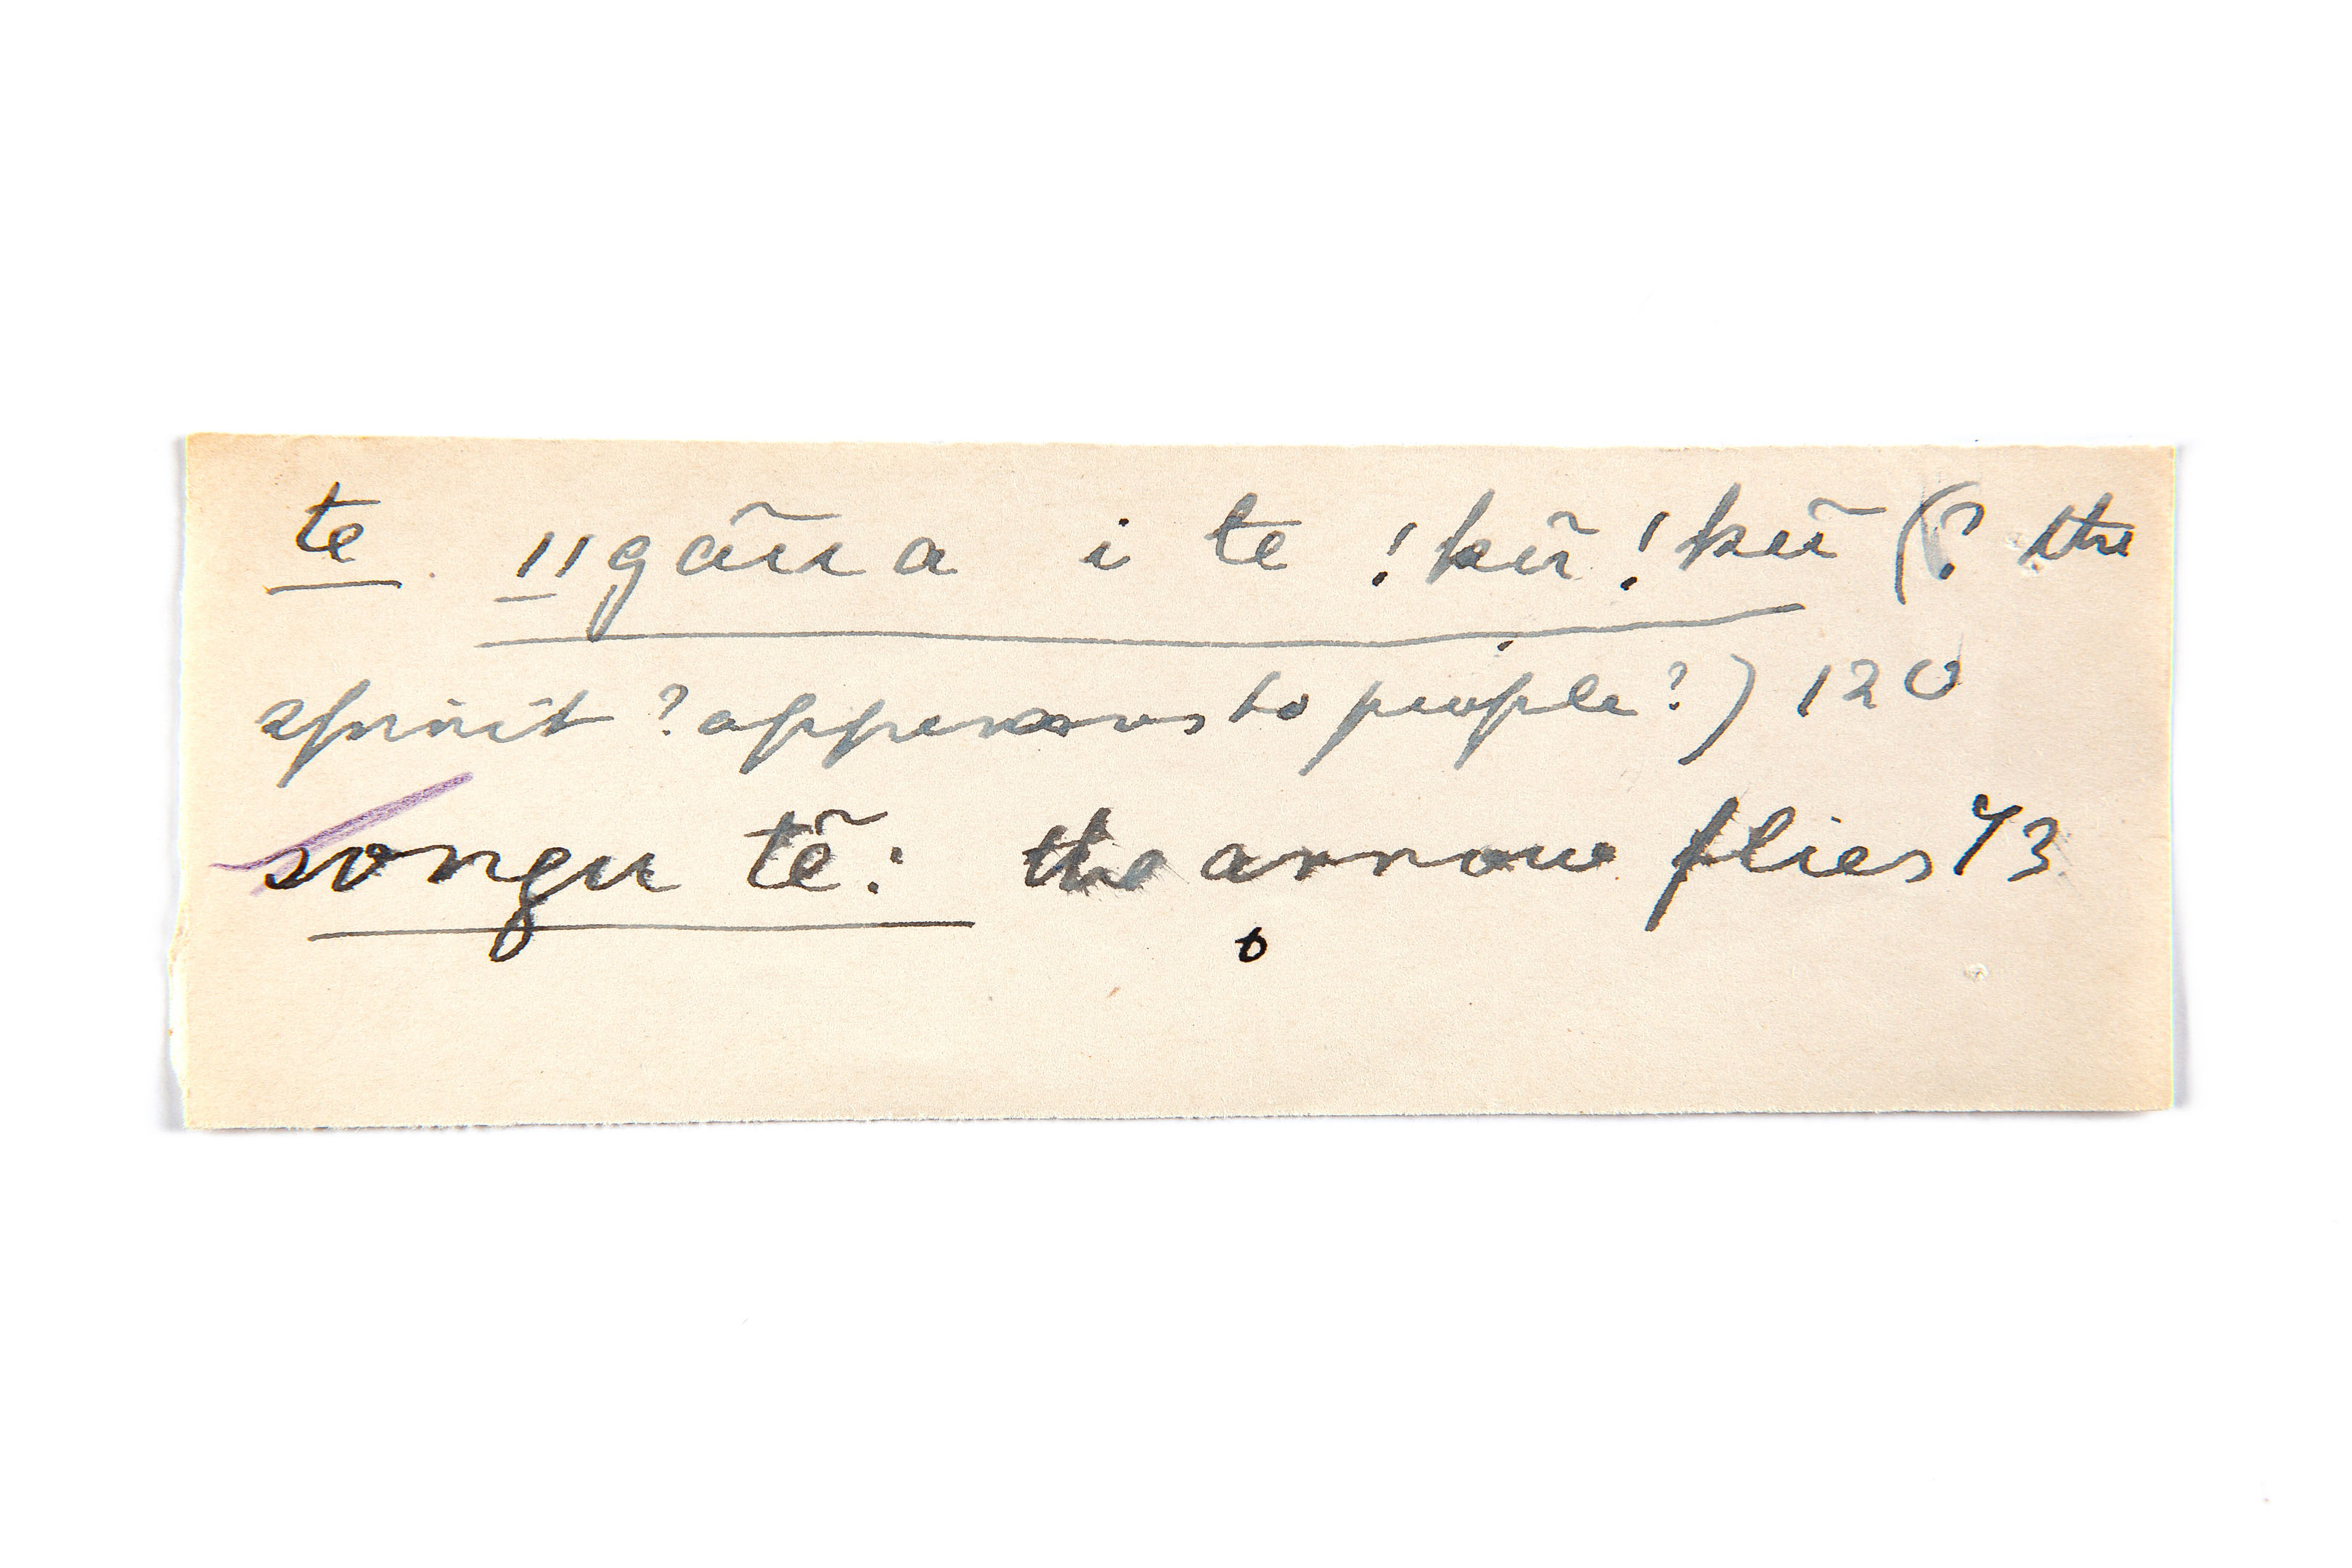 te. ǁgãua i te !kũ!kũ (? the
spirit ? appears to people?) 120
songu tẽ: the arrow flies 43